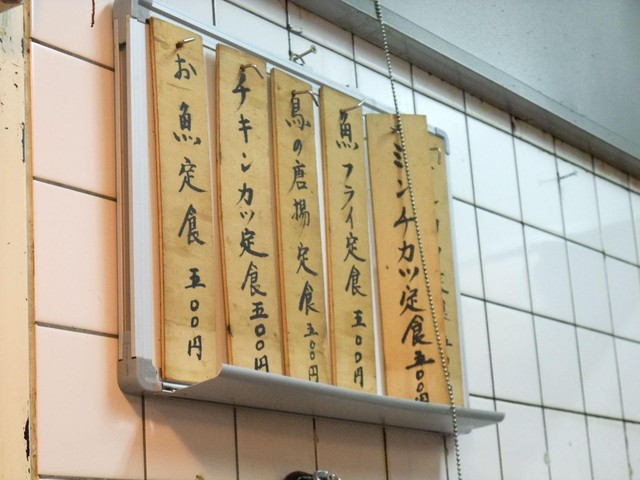 お魚定食 五〇〇円
チキンカツ定食 五〇〇円
鳥の唐揚定食 五〇〇円
魚フライ定食 五〇〇円
ミンチカツ定食 五〇〇円